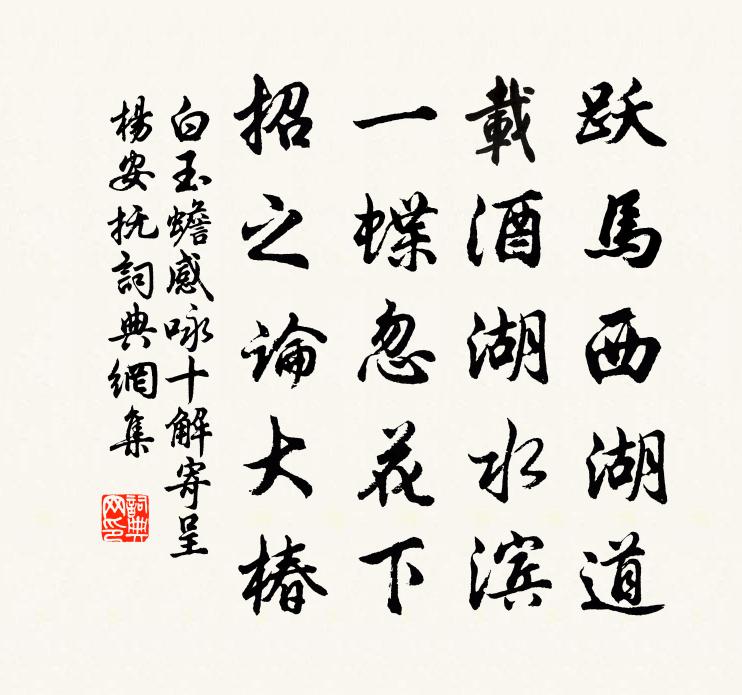 跃馬西湖道
載酒湖水滨
一蝶忽花下
招之論大椿
白玉蟾感咏十解寄呈
楊安抚詞典網集
詞典网印